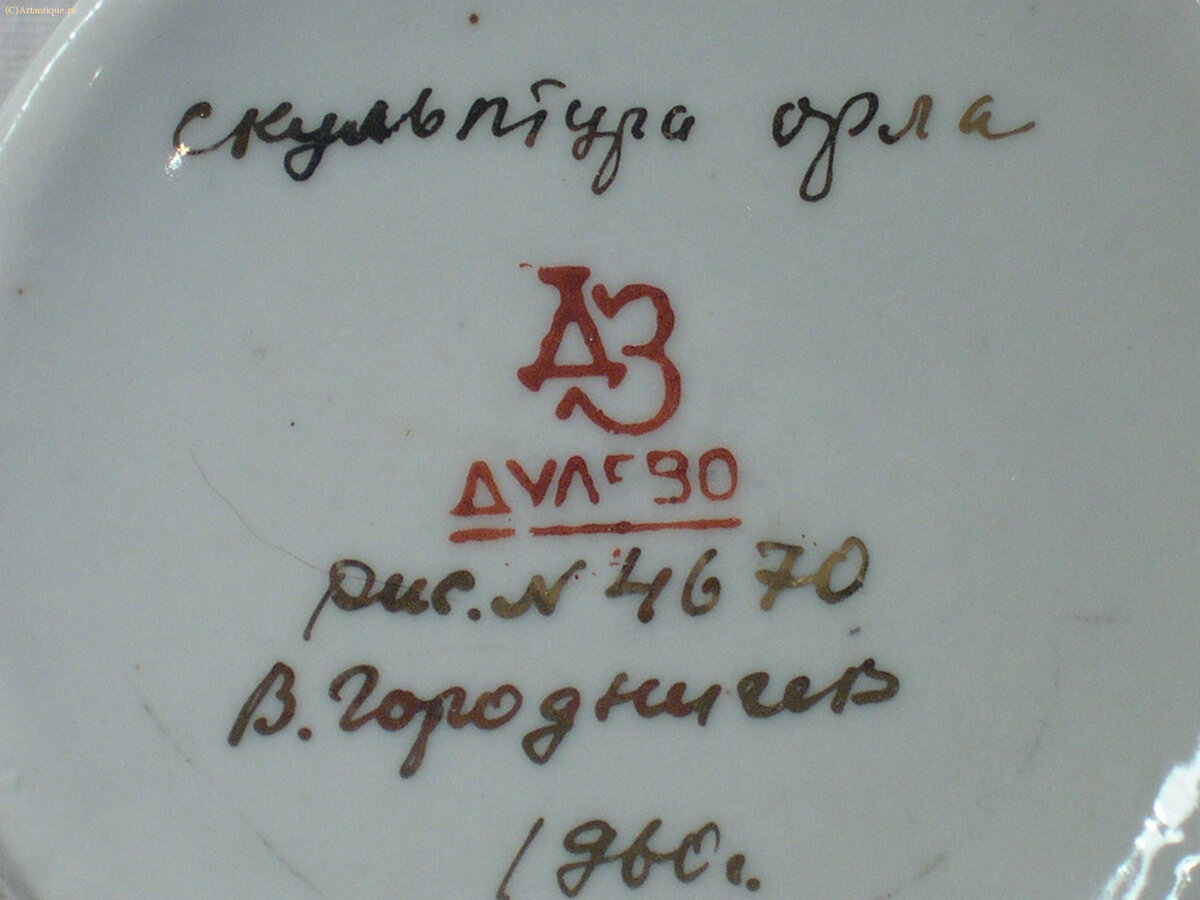 (C)Artantique.ru
скульптура орла
ДЗ
ДУЛЕВО
рис. N 4670
В. Городничев